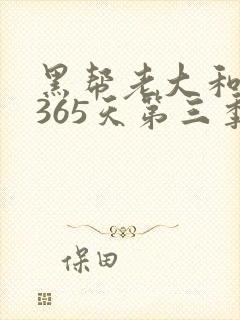 黑帮老大和
365天第三季
保田